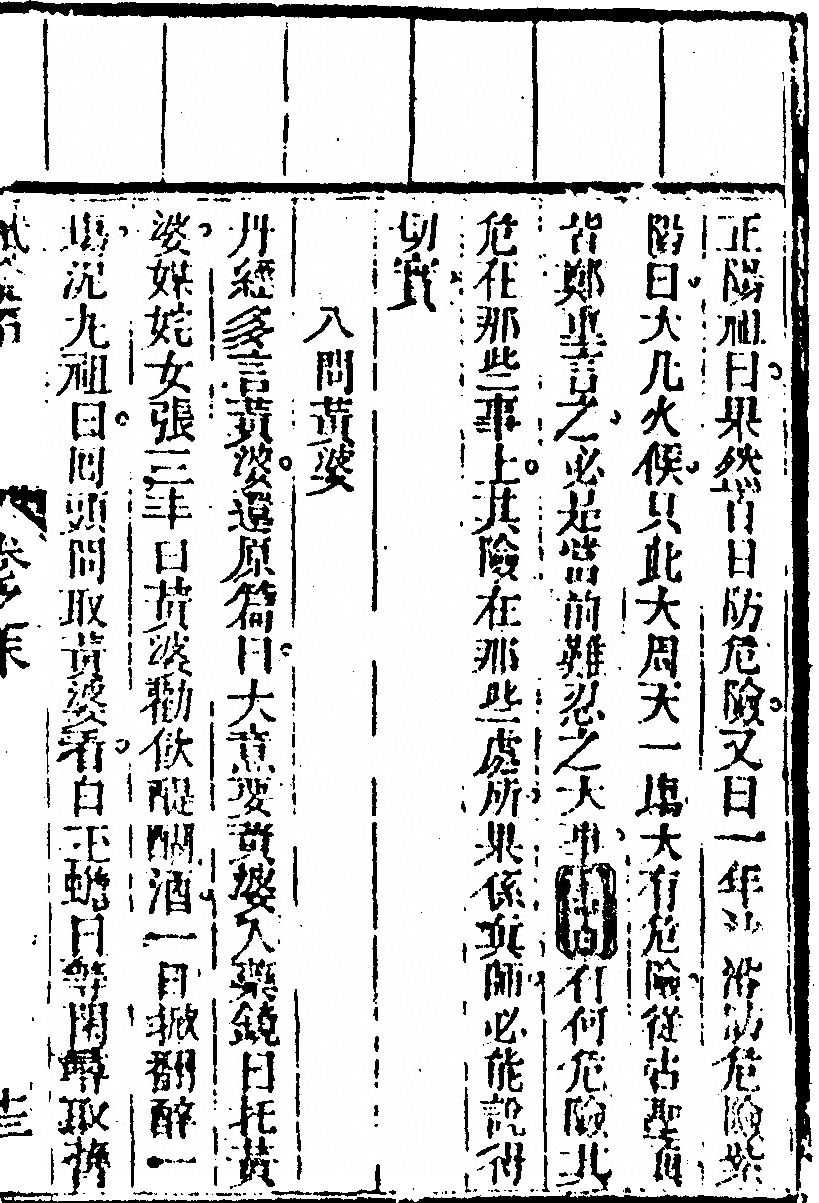 正陽祖曰果然百日防危險又曰一年沐浴防危險紫
陽曰大凡火候只此大周天一塲大有危險從古聖眞
皆鄭重言之必是當前難忍之大事有何危險其
危在那些事上其險在那些處所果係眞師必能說得
切實
八問黃婆
丹經多言黃婆還原篇曰大意要黃婆入藥鏡曰托黃
婆媒姹女張三丰曰黃婆勸飲醍醐酒一日掀翻醉一
塲沉九祖曰回頭問取黃婆看白玉蟾曰等閑尋取
卷